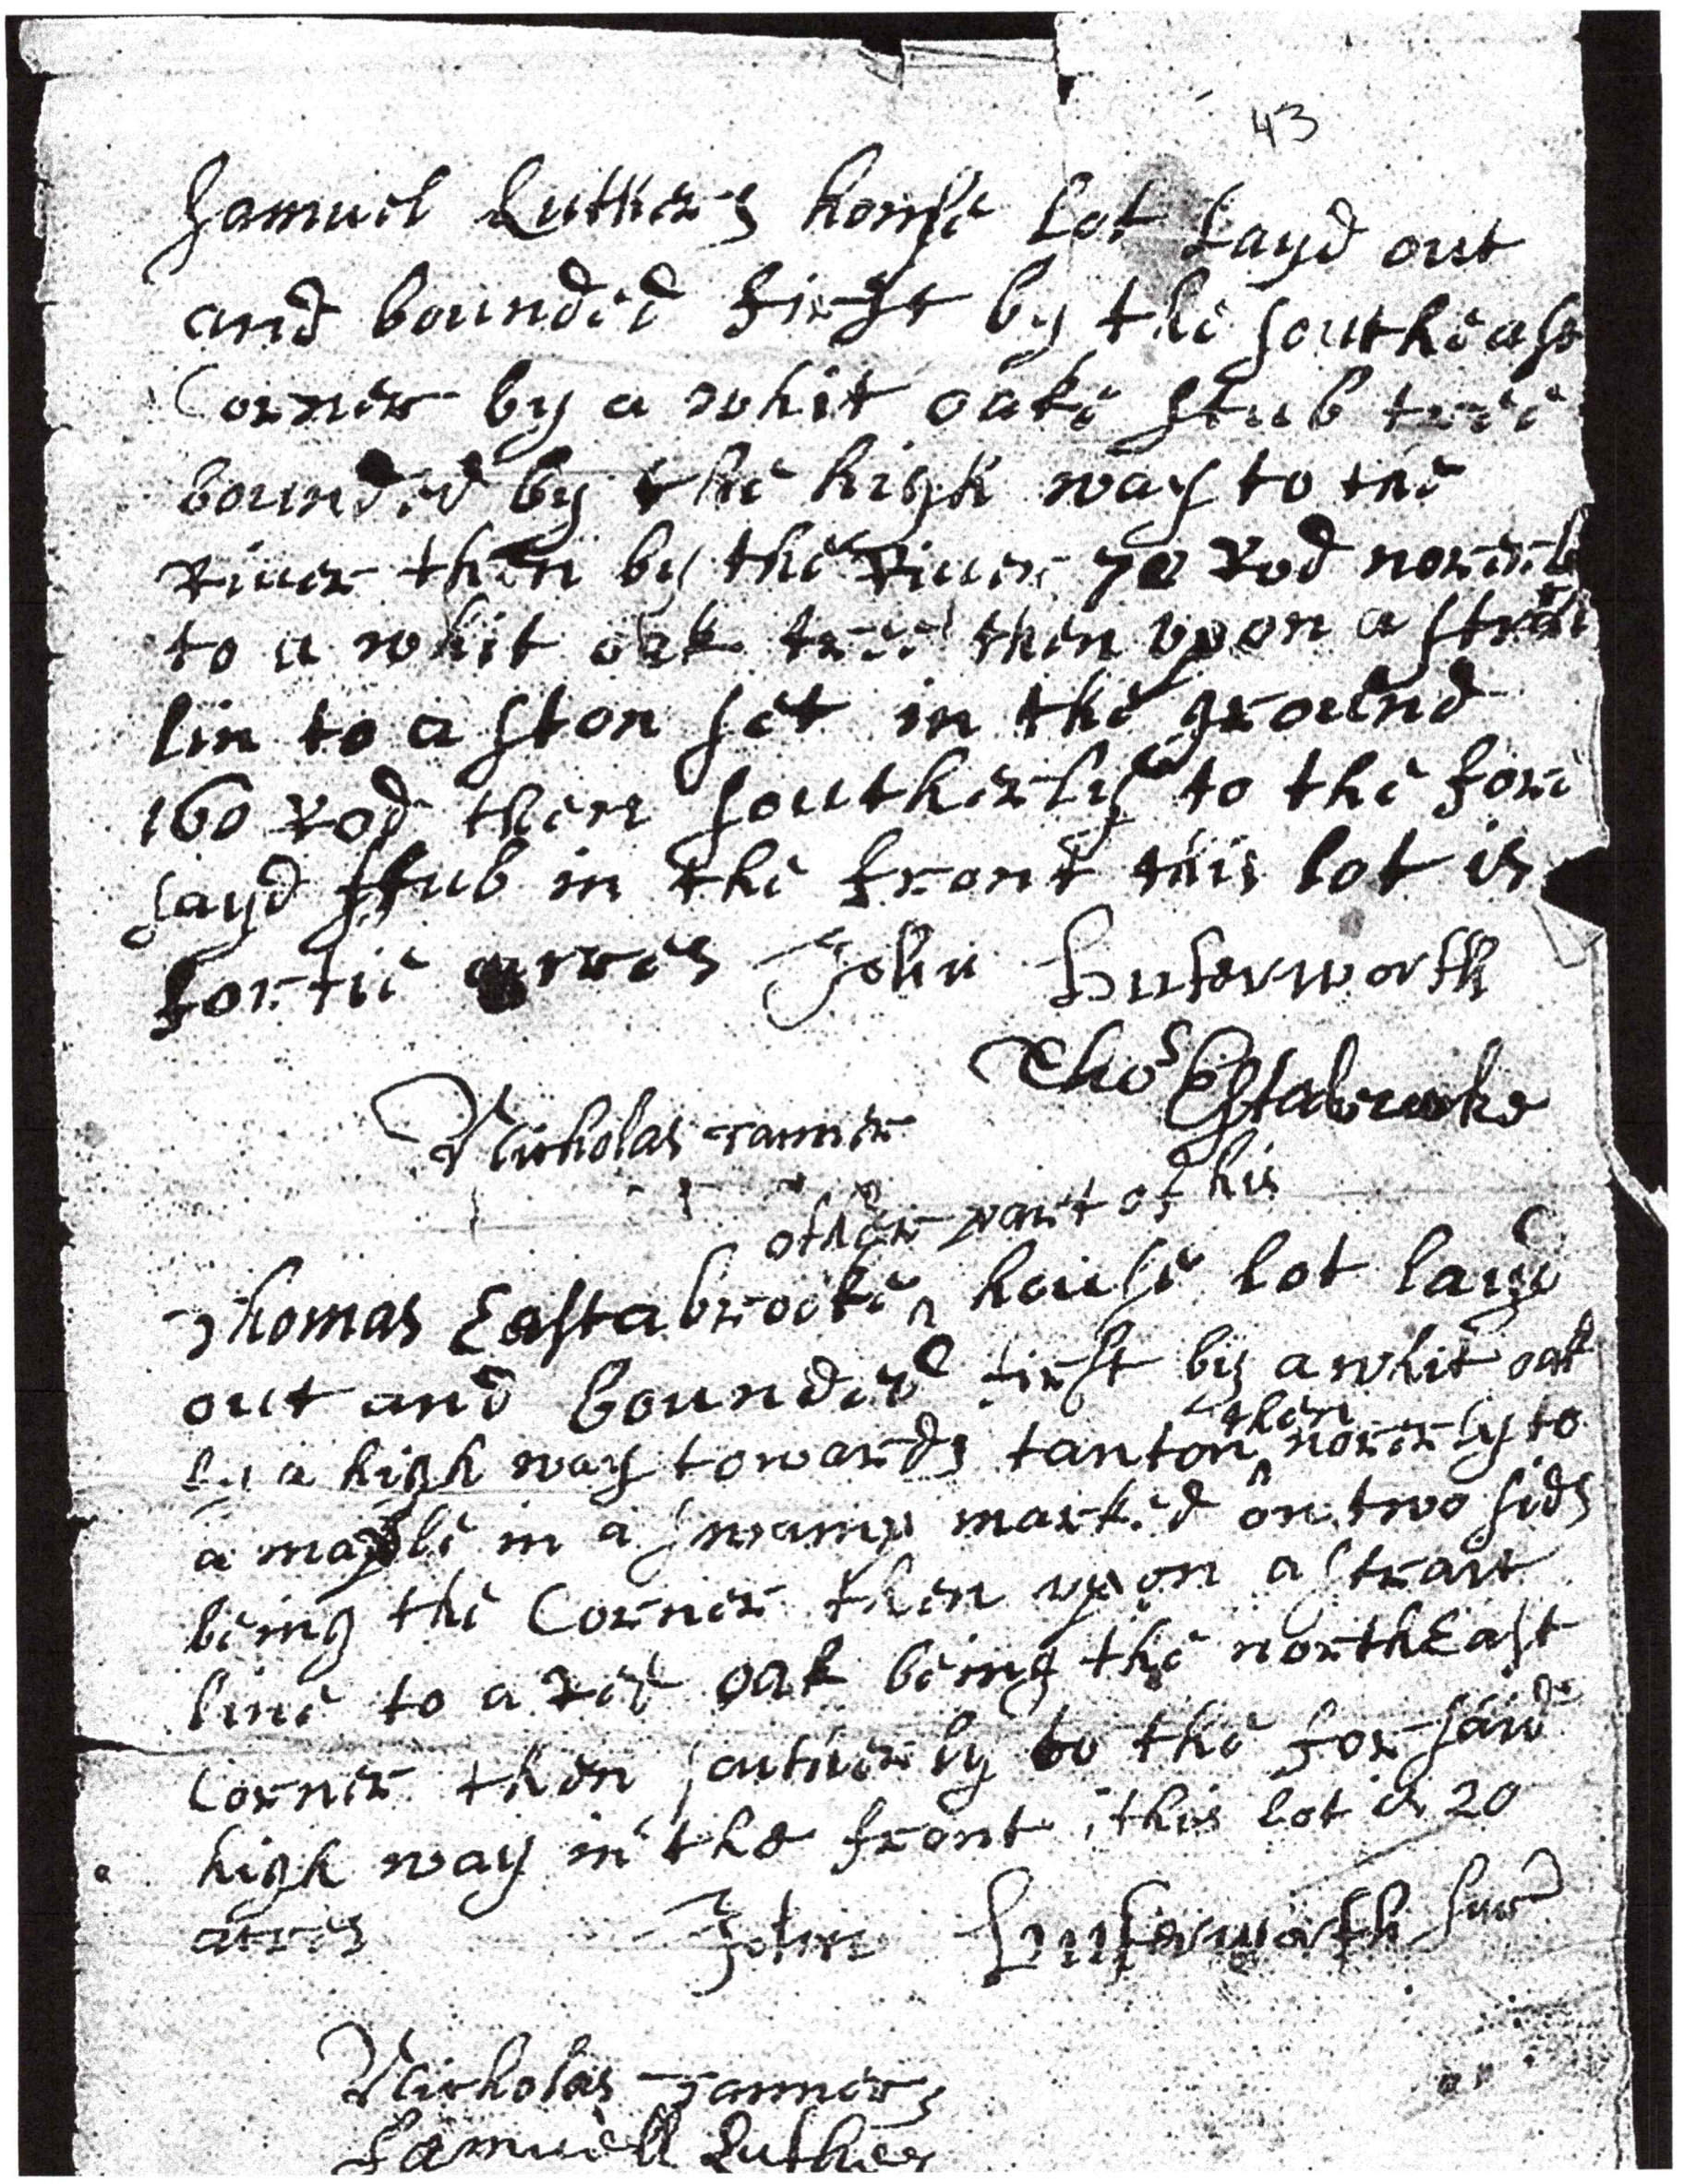 43
Samuel Luthers house lot layd out
and bounded first by the southeast
Corner by a whit oake stub tree
bounded by the high way to the
River then by the River 70 rod norerl
to a whit oak tree then vpon a strai
lin to a ston set in the ground
160 rod then southerly to the fore
sayd stub in the front this lot is
fortie acres John Buterworth
Thos Estabrooke
Nicholas Tanner
other part of his
Thomas Eastabrooke ^ house lot layd
out and bounded first by a whit oak
by a high way towards tanton ^ norerly to
then
a maple in a swamp marked on two sids
being the Corner then vpon a strait
line to a red oak being the northEast
Corner then southerly to the forsaid
high way in the front this lot is 20
acres John Buterworth sur
Nicholas Tanner
Samuell Luther